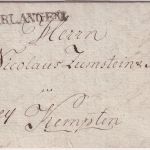 ERLANGEN.
Herrn
Nicolaus Zumstein &
Kempten